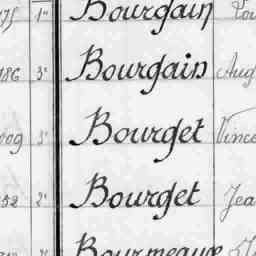 1° Bourgain
186 3° Bourgain Aug
009 3° Bourget Vince
2° Bourget Jea
Bourmeaux